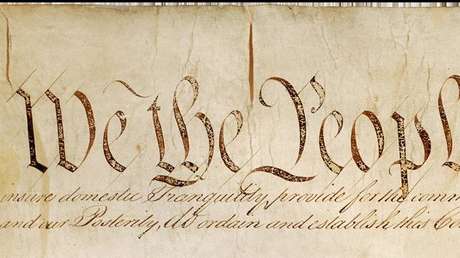 We the Peopl
insure domestic Tranquility, provide for the comm
and our Posterity, do ordain and establish this Co